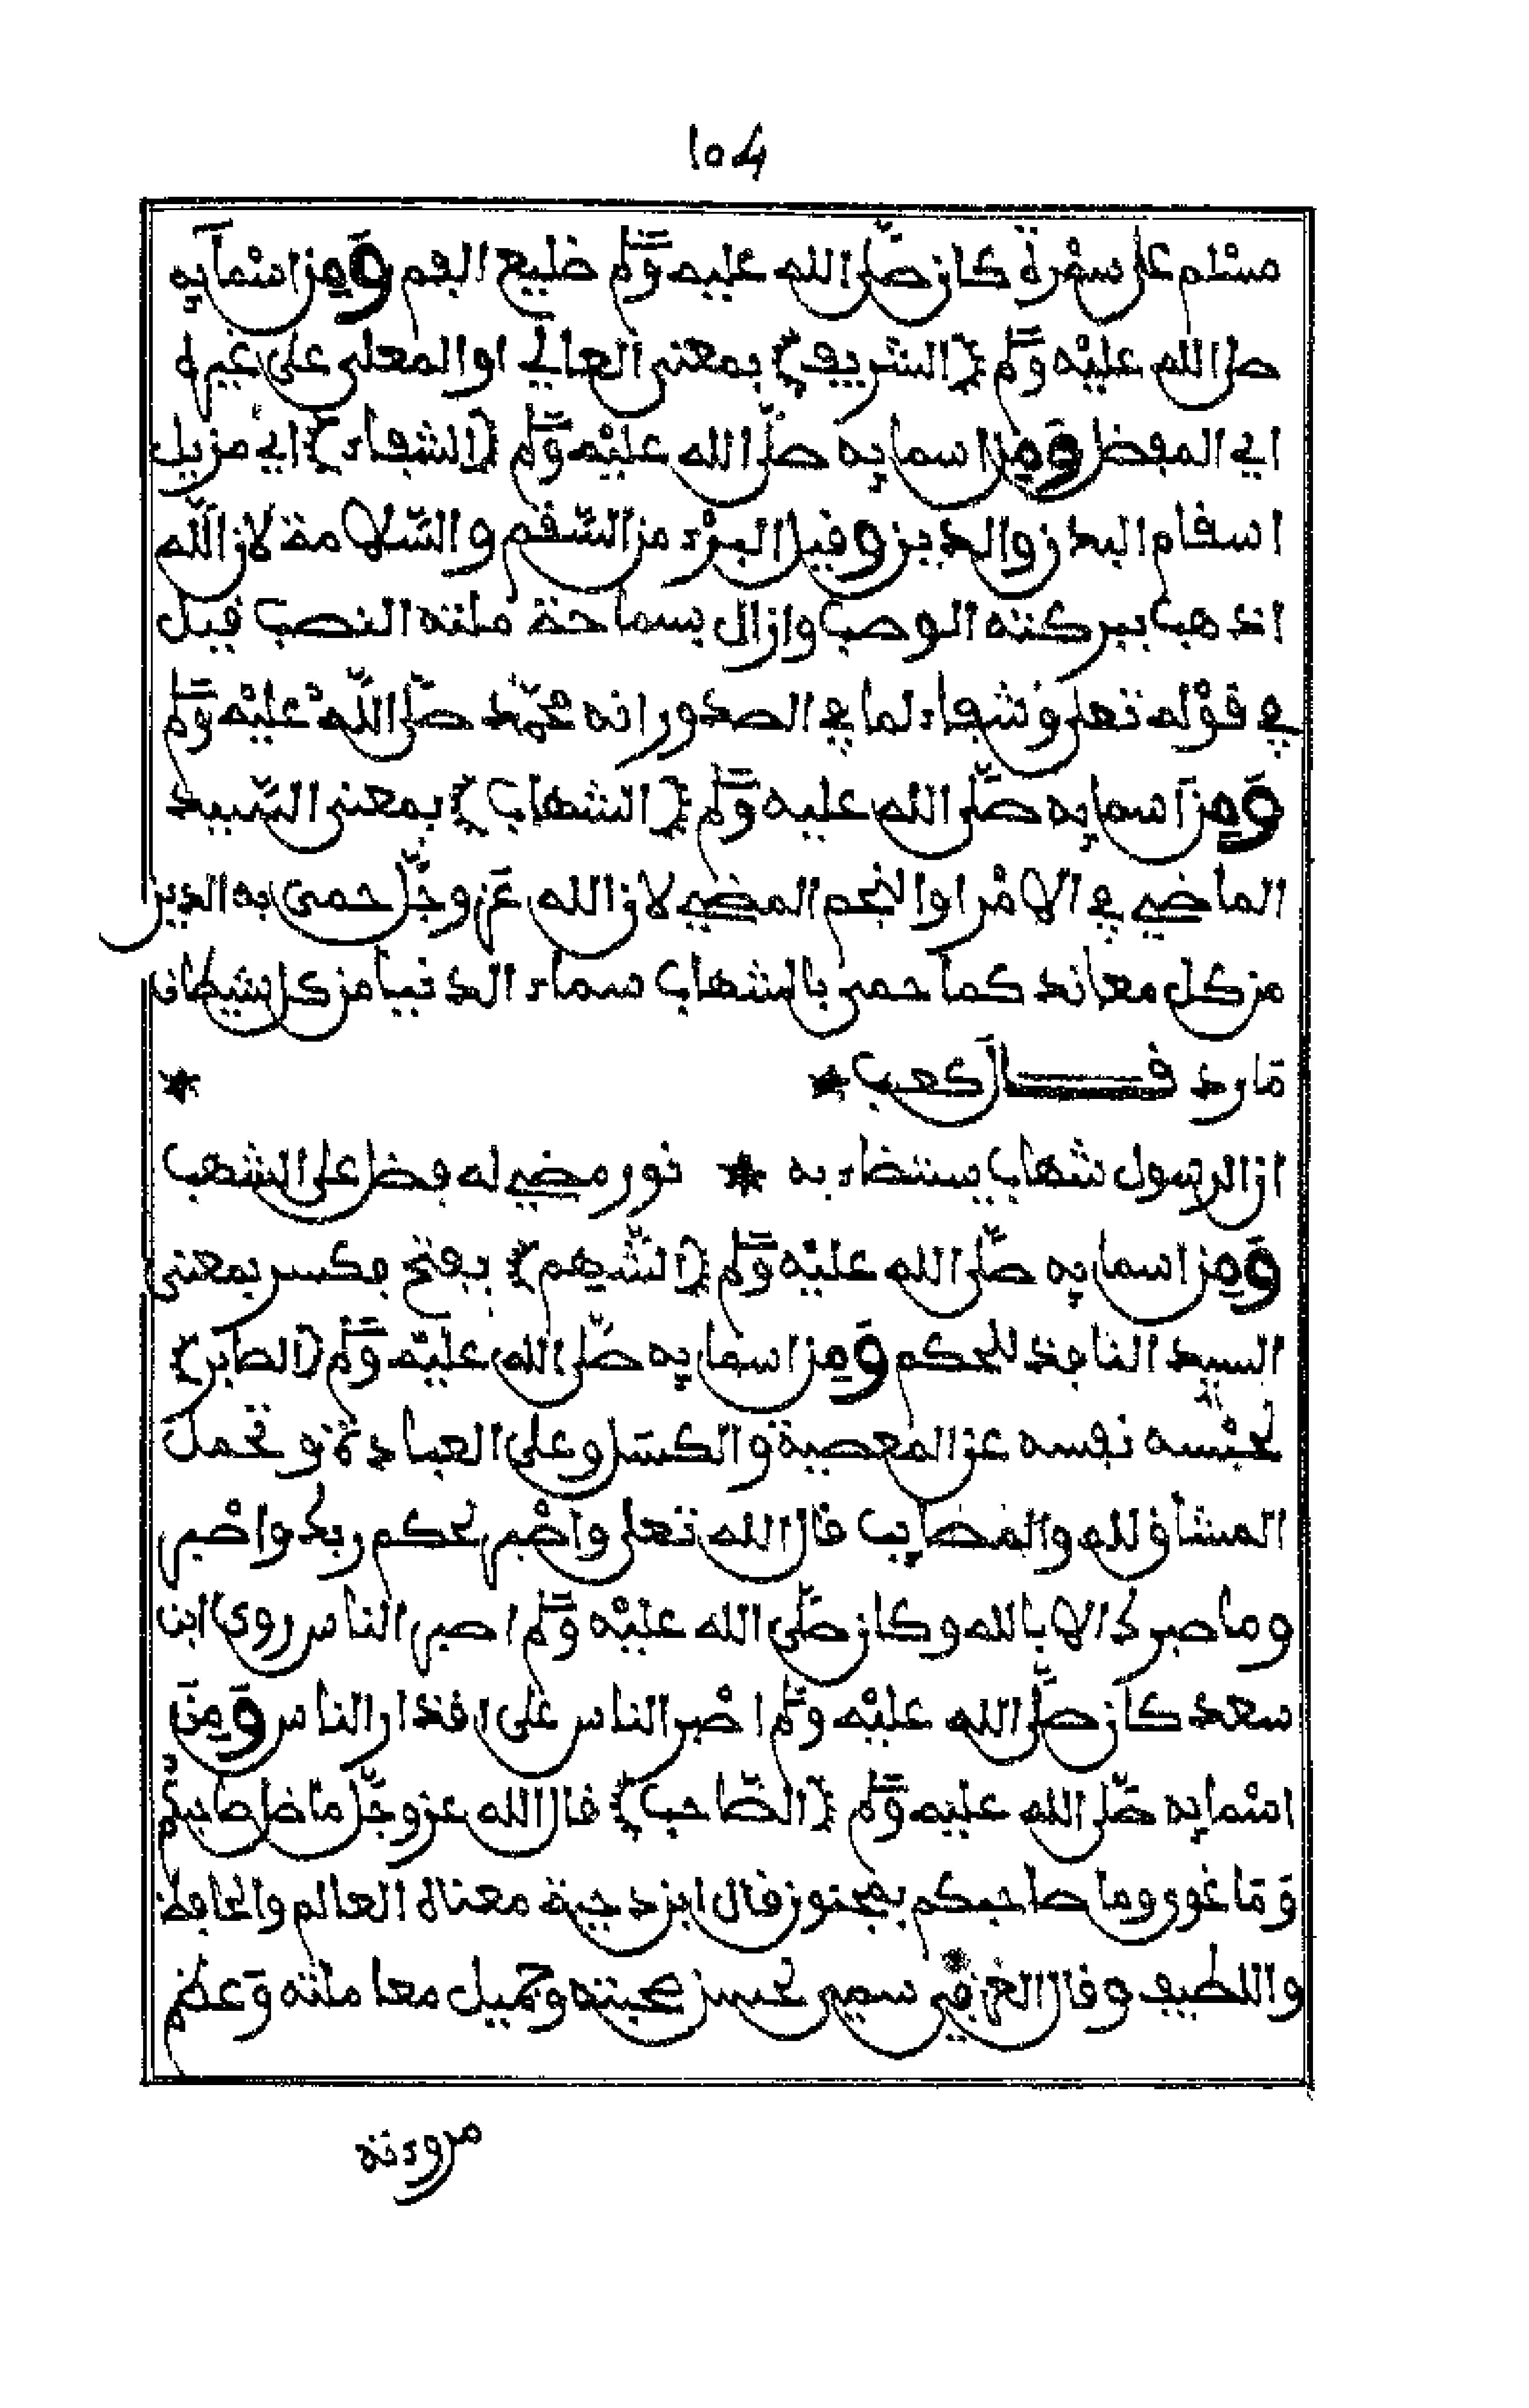 ١٥٤
مسلم عن سمرة كان صلى الله عليه وسلم ضليع الفم ومن اسمايه
صلى الله عليه وسلم (الشريف) بمعنى العالي او المعلى على غيره
اي المفضل ومن اسمايه صلى الله عليه وسلم (الشفاء) اي مزيل
اسقام البدن والدين وقيل البرء من السقم والسلامة لان الله
اذهب ببركته الوصب وازال بسماحة ملته النصب قيل
في قوله تعلى وشفاء لما في الصدور انه محمد صلى الله عليه وسلم
ومن اسمايه صلى الله عليه وسلم (الشهاب) بمعنى السيد
الماضي في الامر او النجم المضي لان الله عز وجل حمى به الدين
من كل معاند كما حمى بالشهاب سماء الدنيا من كل شيطان
مارد قال كعب *                *
ان الرسول شهاب يستضاء به * نور مضي له فضل على الشهب
ومن اسمايه صلى الله عليه وسلم (الشهم) بفتح فكسر بمعنى
السيد النافذ للحكم ومن اسمايه صلى الله عليه وسلم (الصابر)
لحبسه نفسه عن المعصية والكسل وعلى العبادة وتحمل
المشاق لله والمصايب قال الله تعلى واصبر لحكم ربك واصبر
وما صبرك الا بالله وكان صلى الله عليه وسلم اصبر الناس روى ابن
سعد كان صلى الله عليه وسلم اصبر الناس على اقذار الناس ومن
اسمايه صلى الله عليه وسلم (الصاحب) قال الله عز وجل ما ضل صاحبكم
وما غوى وما صاحبكم بمجنون قال ابن دحية معناه العالم والحافظ
واللطيف وقال العزفي سمي لحسن صحبته وجميل معاملته وعظم
مروءته